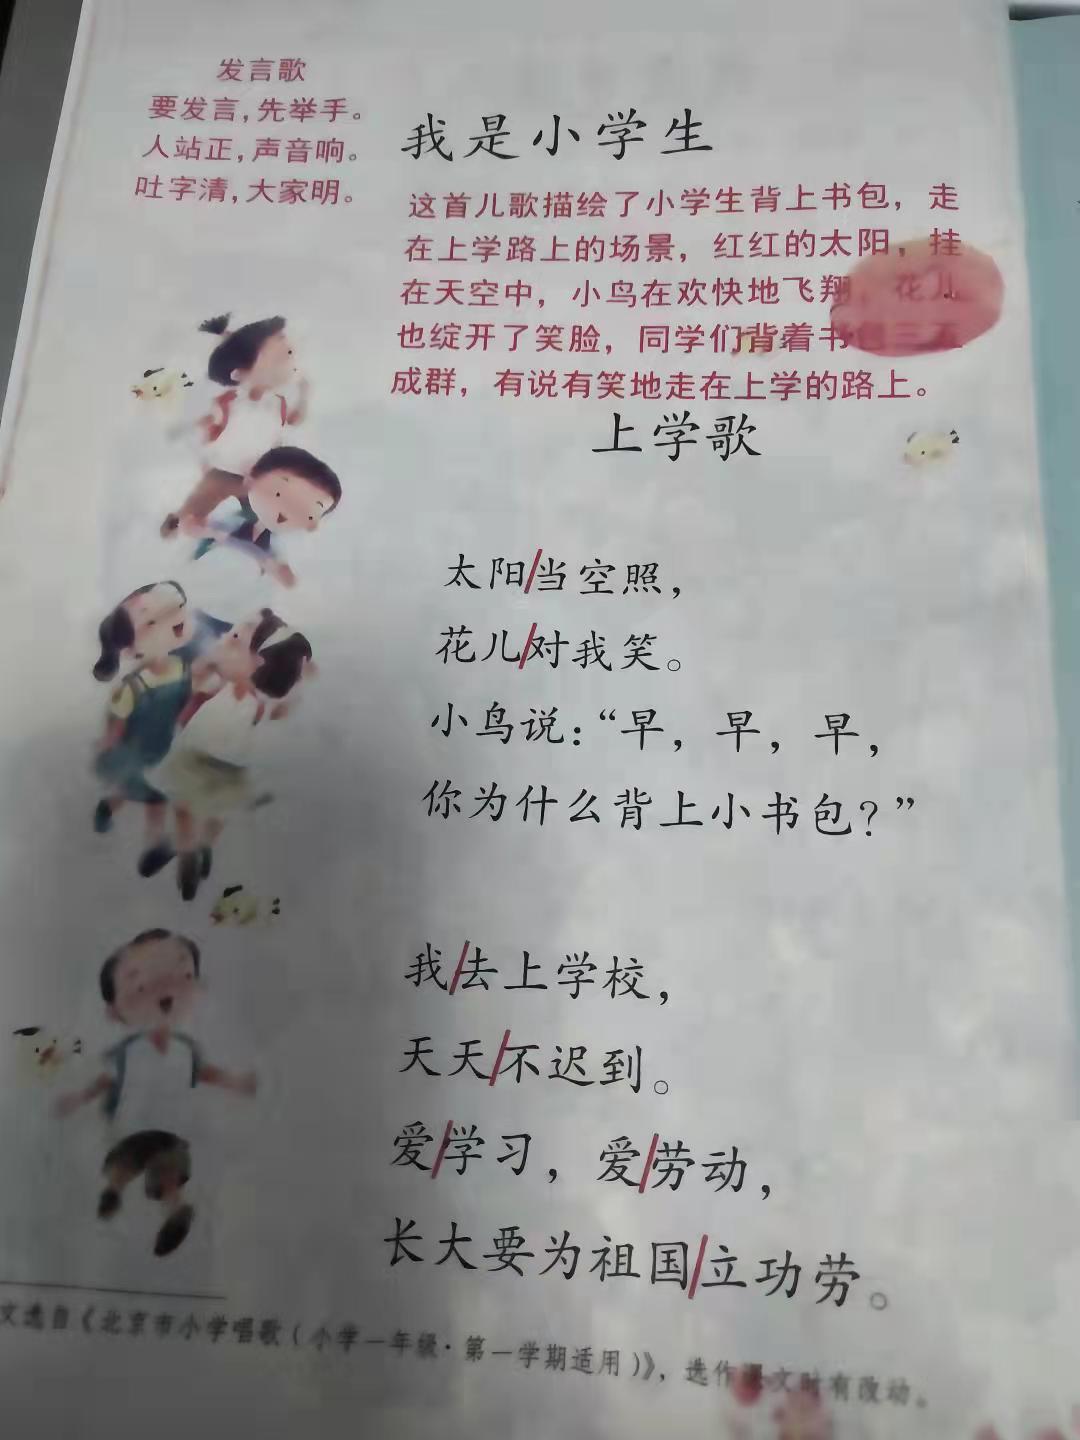 发言歌
要发言,先举手。
人站正,声音响。
吐字清,大家明。
我是小学生
这首儿歌描绘了小学生背上书包，走
在上学路上的场景，红红的太阳，挂
在天空中，小鸟在欢快地飞翔，花儿
也绽开了笑脸，同学们背着书包三五
成群，有说有笑地走在上学的路上。
上学歌
太阳/当空照，
花儿/对我笑。
小鸟说：“早，早，早，
你为什么背上小书包？”
我/去上学校，
天天/不迟到。
爱/学习，爱/劳动，
长大要为祖国/立功劳。
文选自《北京市小学唱歌（小学一年级·第一学期适用）》，选作课文时有改动。